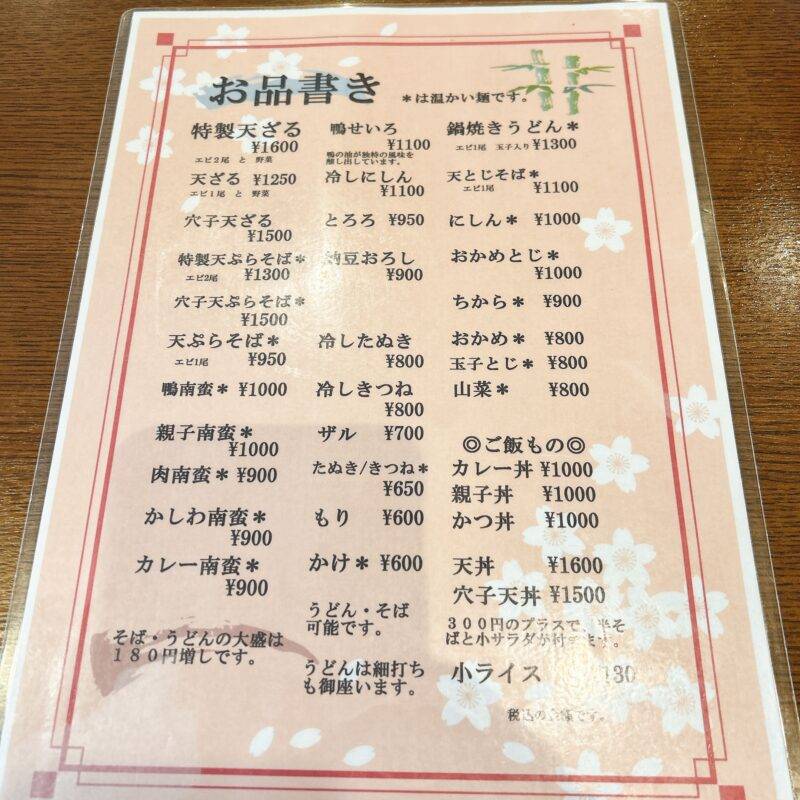 お品書き
＊は温かい麺です。
特製天ざる
¥1600
エビ２尾 と 野菜
天ざる ¥1250
エビ１尾 と 野菜
穴子天ざる
¥1500
特製天ぷらそば＊
エビ2尾 ¥1300
穴子天ぷらそば＊
¥1500
天ぷらそば＊
エビ1尾 ¥950
鴨南蛮＊ ¥1000
親子南蛮＊
¥1000
肉南蛮＊ ¥900
かしわ南蛮＊
¥900
カレー南蛮＊
¥900
そば・うどんの大盛は
１８０円増しです。
鴨せいろ
¥1100
鴨の油が独特の風味を
醸し出しています。
冷しにしん
¥1100
とろろ ¥950
納豆おろし
¥900
冷したぬき
¥800
冷しきつね
¥800
ザル ¥700
たぬき/きつね＊
¥650
もり ¥600
かけ＊ ¥600
うどん・そば
可能です。
うどんは細打ち
も御座います。
鍋焼きうどん＊
エビ1尾 玉子入り ¥1300
天とじそば＊
エビ1尾 ¥1100
にしん＊ ¥1000
おかめとじ＊
¥1000
ちから＊ ¥900
おかめ＊ ¥800
玉子とじ＊ ¥800
山菜＊ ¥800
◎ご飯もの◎
カレー丼 ¥1000
親子丼 ¥1000
かつ丼 ¥1000
天丼 ¥1600
穴子天丼 ¥1500
３００円のプラスで、半そ
ばと小サラダが付きます。
小ライス 130
税込の金額です。